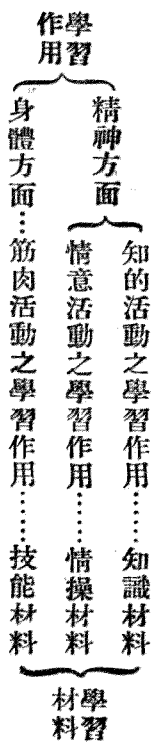 學習
作用
精神方面
知的活動之學習作用……知識材料
情意活動之學習作用……情操材料
身體方面…筋肉活動之學習作用……技能材料
學習
材料